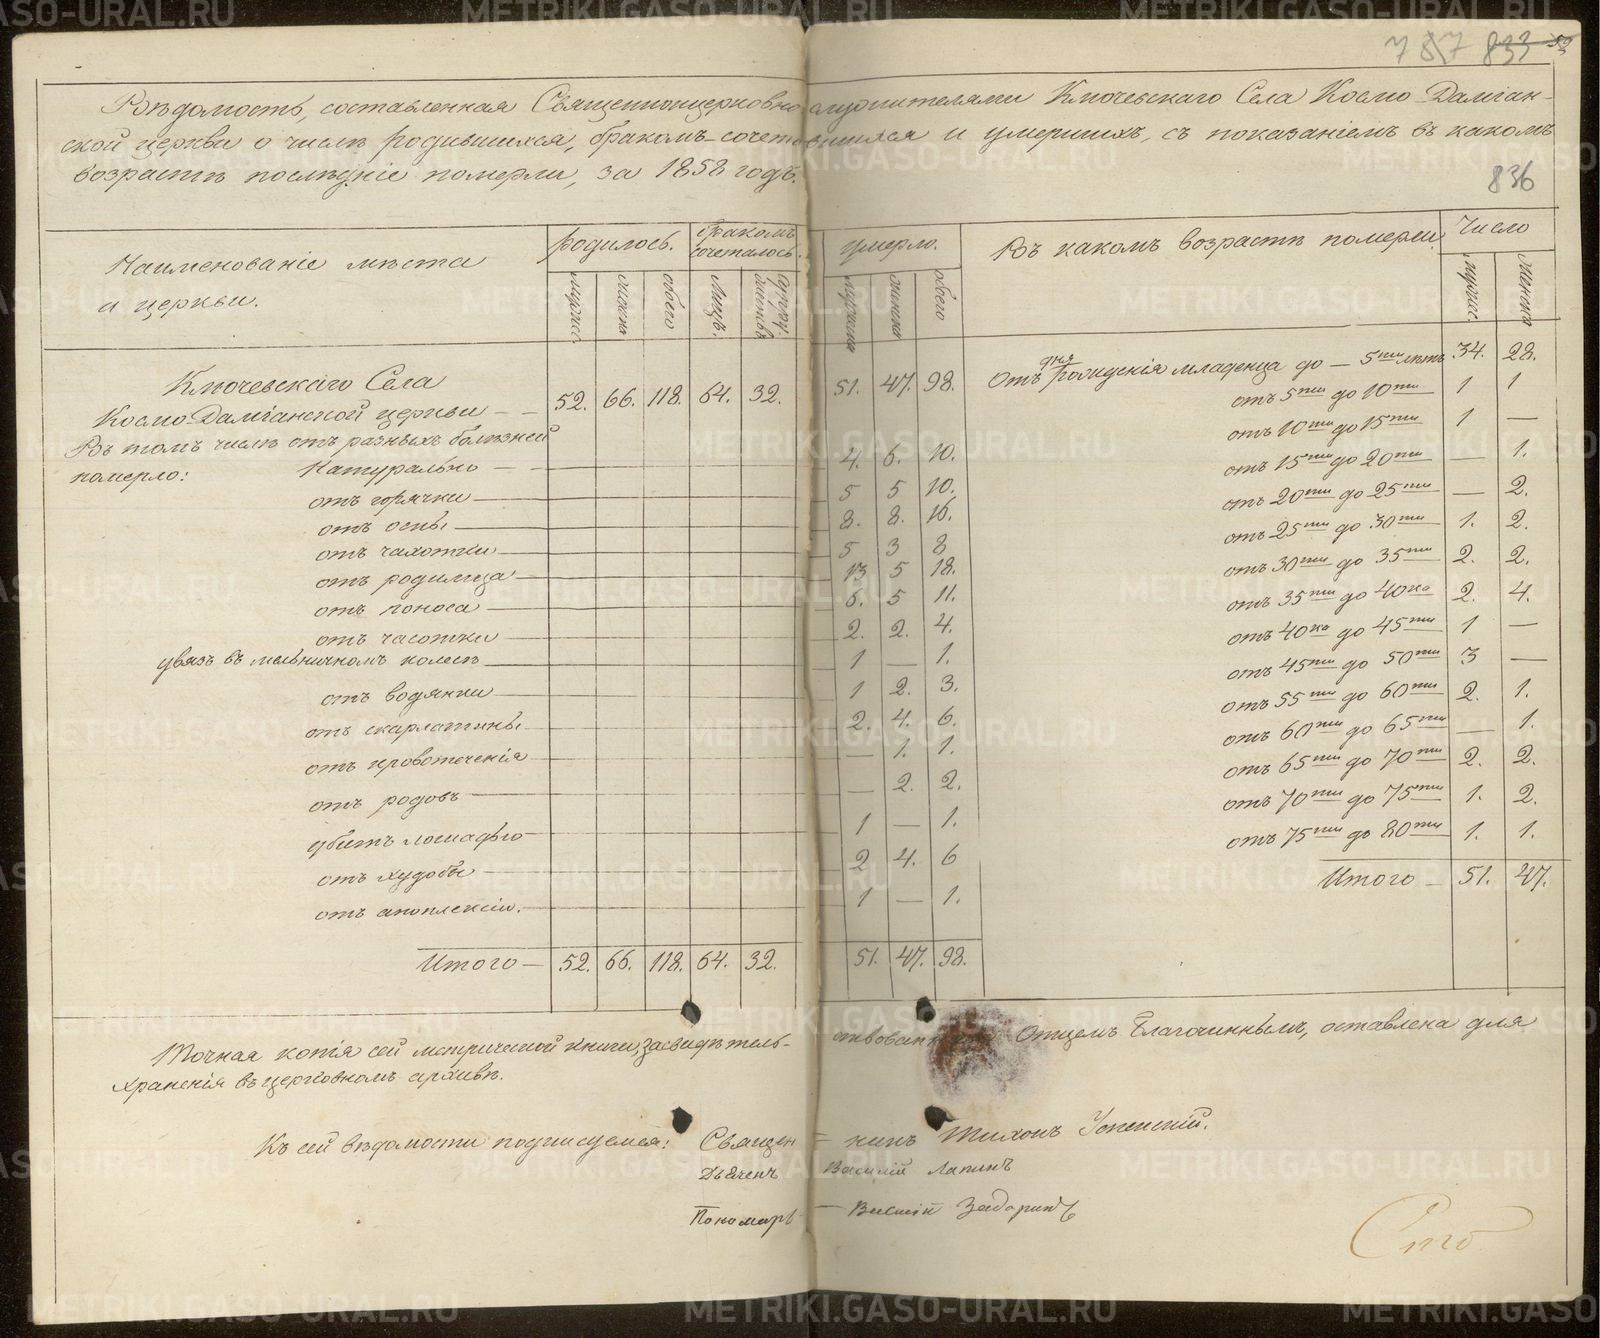 787 833 50
Вѣдомость, составленная Священноцерковнослужителями Ключевскаго Села Космо-Даміан-
ской церкви о числѣ родившихся, бракомъ-сочетавшихся и умершихъ, съ показаніемъ въ какомъ
возрастѣ послѣдніе померли, за 1858 годъ.
836
Наименованіе мѣста и церкви. родилось. бракомъ сочеталось. умерло. Въ какомъ возрастѣ померли. Число
мужес. женска обоего Лицъ. мужска женска обоего мужес. Женска
Ключевскаго Села
Космо-Даміанской церкви — 52. 66. 118. 64. 32. 51. 47. 98.
Въ томъ числѣ отъ разныхъ болѣзней
померло: Натурально — 4. 6. 10.
отъ горячки — 5 5 10.
отъ оспы — 8. 8. 16.
отъ чахотки — 5 3 8
отъ родимца — 13 5 18.
отъ поноса — 6. 5 11.
отъ чесотки — 2. 2. 4.
увязъ въ мельничномъ колесѣ — 1 — 1.
отъ водянки — 1 2. 3.
отъ скарлатины — 2. 4. 6.
отъ кровотеченія — — 1. 1.
отъ родовъ — — 2. 2.
убитъ лошадью — 1 — 1.
отъ худобы — 2 4. 6
отъ апоплексіи. — 1 — 1.
Итого — 52. 66. 118. 64. 32. 51. 47. 98.
Отъ дня рожденія младенца до — 5ти лѣтъ 34. 28.
отъ 5ти до 10ти 1 1
отъ 10ти до 15ти 1 —
отъ 15ти до 20ти — 1.
отъ 20ти до 25ти — 2.
отъ 25ти до 30ти 1. 2.
отъ 30ти до 35ти 2. 2.
отъ 35ти до 40ка 2. 4.
отъ 40ка до 45ти 1 —
отъ 45ти до 50ти 3 —
отъ 55ти до 60ти 2. 1.
отъ 60ти до 65ти — 1.
отъ 65ти до 70ти 2. 2.
отъ 70ти до 75ти 1. 2.
отъ 75ти до 80ти 1. 1.
Итого — 51. 47.
Точная копія сей метрической книги, засвидѣтель-ствованная Отцемъ Благочиннымъ, оставлена для
храненія въ церковномъ архивѣ.
Къ сей вѣдомости подписуемся: Священ=никъ Тихонъ Успенскій.
Дьячекъ Василій Лапинъ
Пономарь — Василій
METRIKI.GASO-URAL.RU